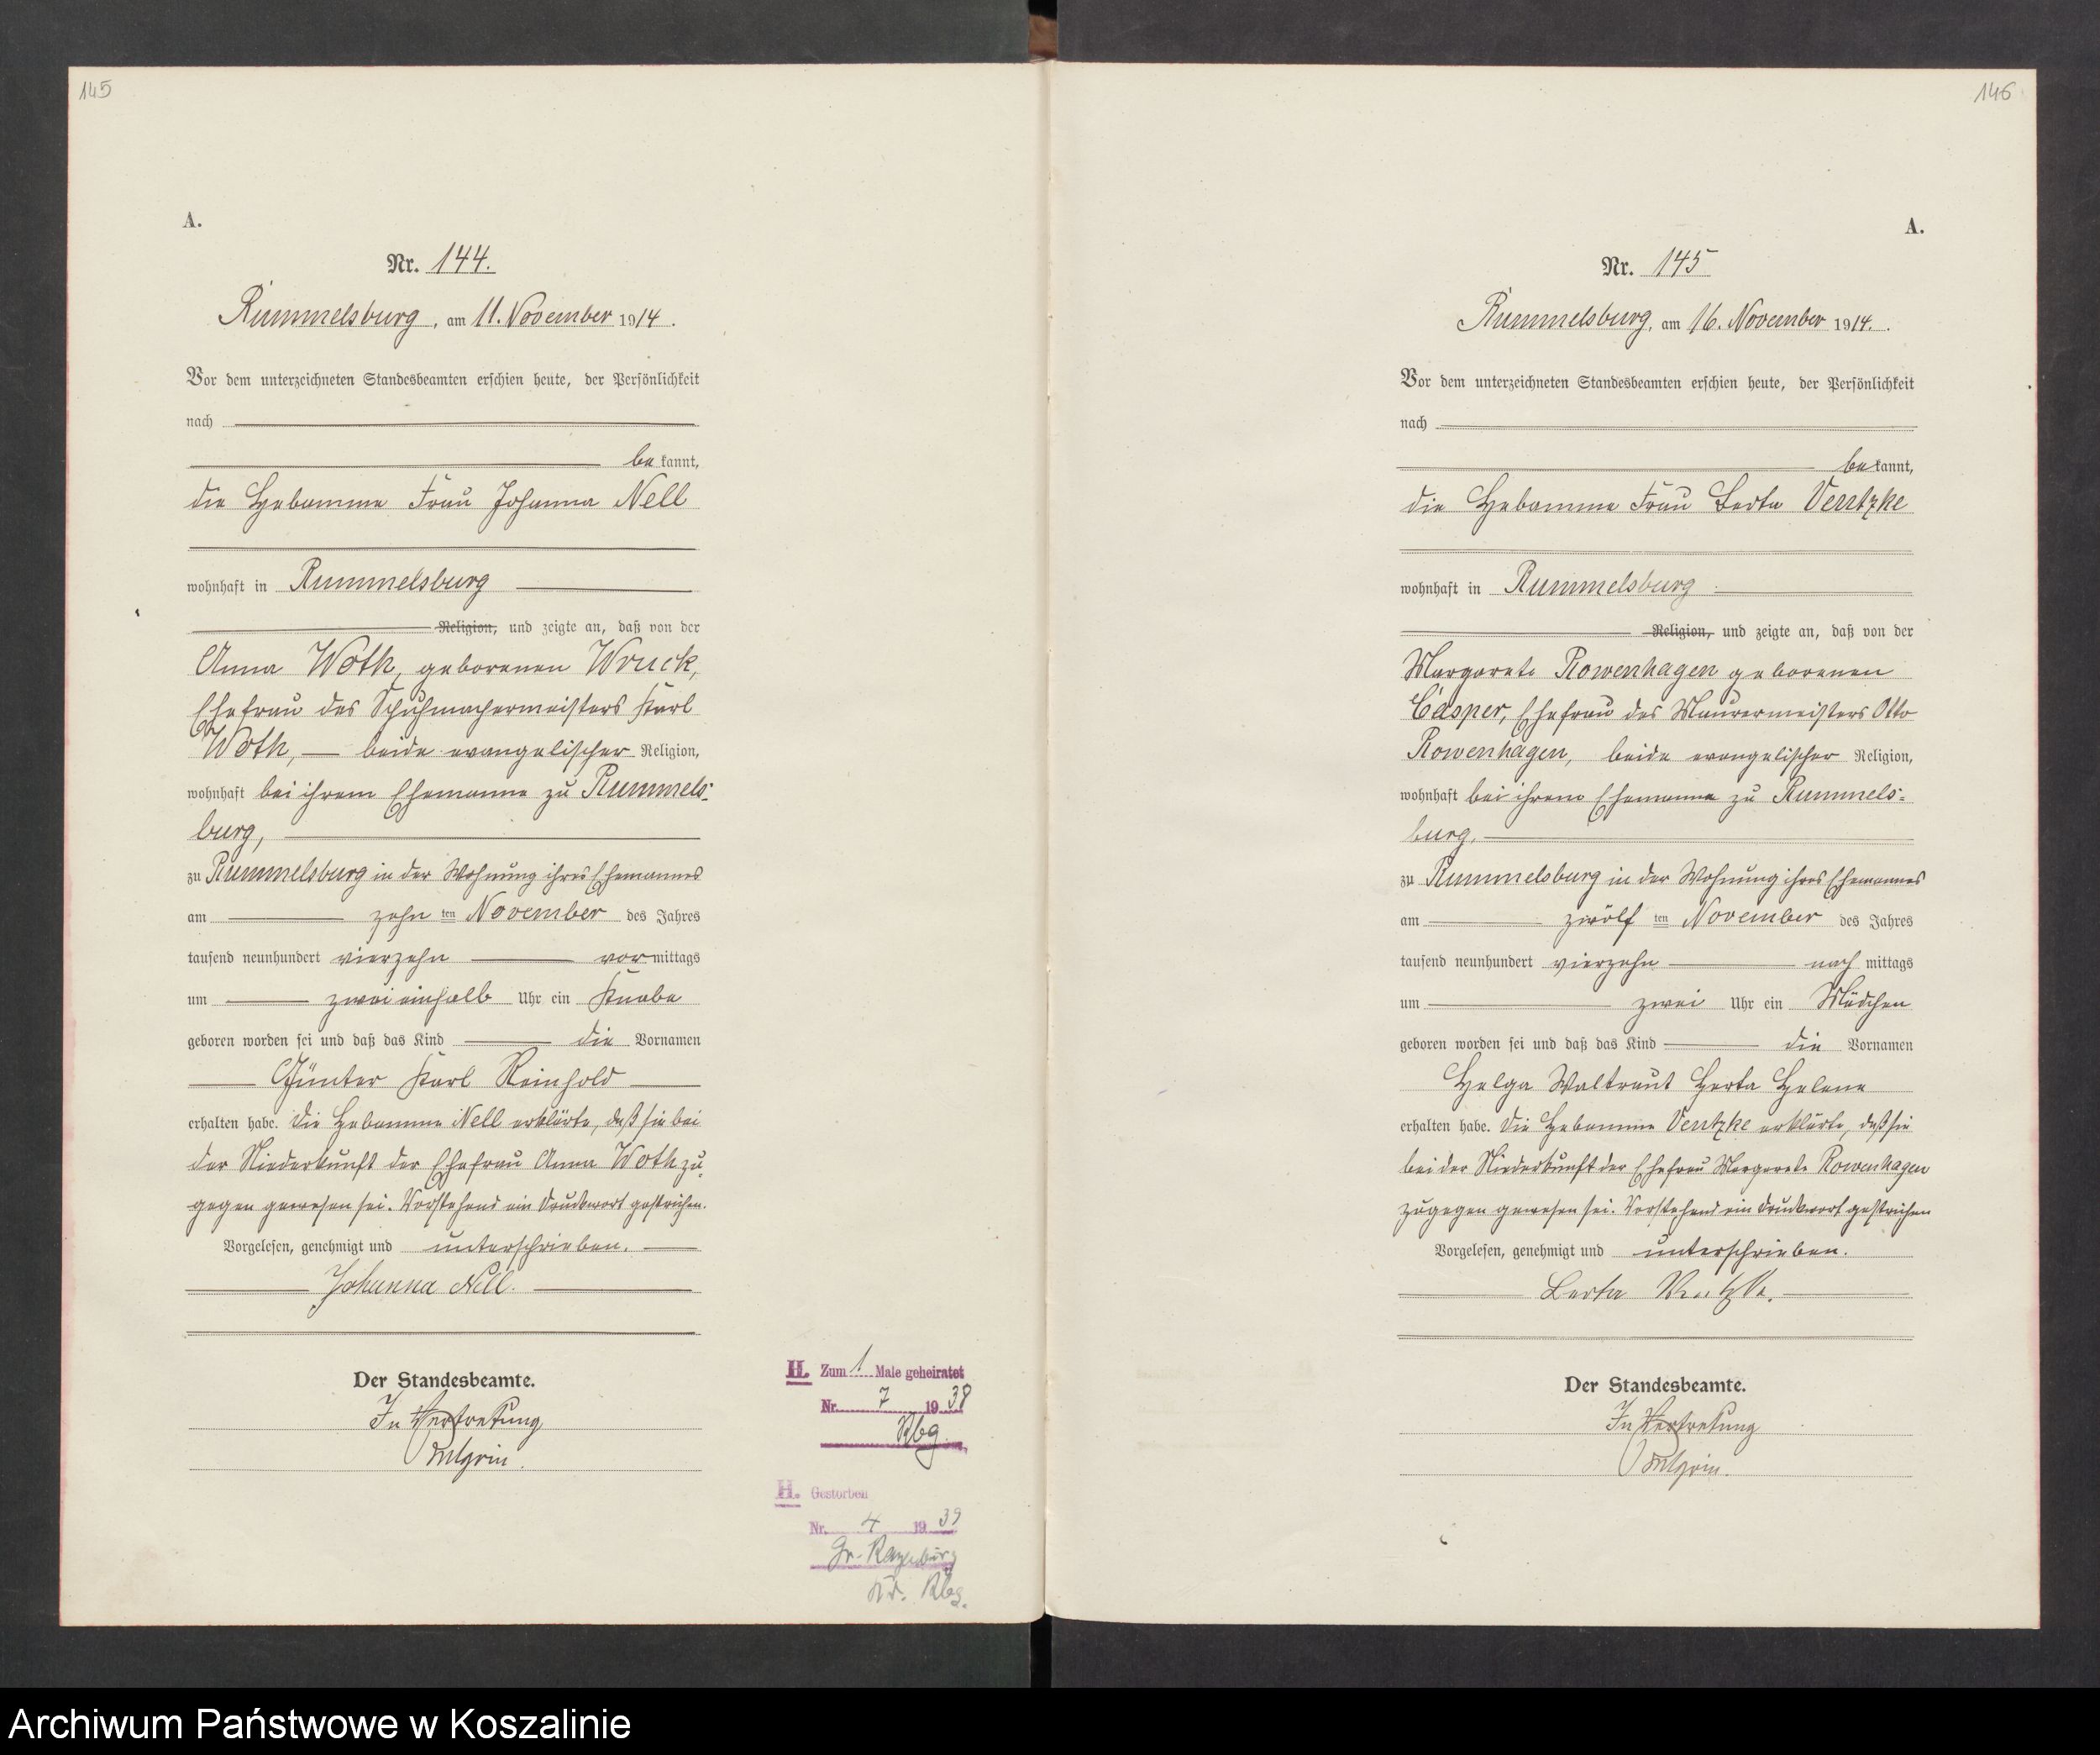 145
A.
Nr. 144.
Rummelsburg, am 11. November 1914.
Vor dem unterzeichneten Standesbeamten erschien heute, der Persönlichkeit
nach
be kannt,
die Hebamme Frau Johanna Nell
wohnhaft in Rummelsburg
Religion, und zeigte an, daß von der
Anna Woth, geborenen Wruck,
Ehefrau des Schuhmachermeisters Karl
Woth, — beide evangelischer Religion,
wohnhaft bei ihrem Ehemanne zu Rummels-
burg,
zu Rummelsburg in der Wohnung ihres Ehemannes
am zehn ten November des Jahres
tausend neunhundert vierzehn vor mittags
um zwei einhalb Uhr ein Knabe
geboren worden sei und daß das Kind die Vornamen
Günter Karl Reinhold
erhalten habe. Die Hebamme Nell erklärte, daß sie bei
der Niederkunft der Ehefrau Anna Woth zu-
gegen gewesen sei. Vorstehend ein Druckwort gestrichen.
Vorgelesen, genehmigt und unterschrieben.
Johanna Nell.
Der Standesbeamte.
In Vertretung
H. Zum 1 Male geheiratet
Nr. 7 1938
Rbg.
H. Gestorben
Nr. 4 1939
Kr. Rbg.
146
A.
Nr. 145
Rummelsburg, am 16. November 1914.
Vor dem unterzeichneten Standesbeamten erschien heute, der Persönlichkeit
nach
be kannt,
die Hebamme Frau Berta Ventzke
wohnhaft in Rummelsburg
Religion, und zeigte an, daß von der
Margarete Rowenhagen geborenen
Casper, Ehefrau des Maurermeisters Otto
Rowenhagen, beide evangelischer Religion,
wohnhaft bei ihrem Ehemanne zu Rummels-
burg,
zu Rummelsburg in der Wohnung ihres Ehemannes
am zwölf ten November des Jahres
tausend neunhundert vierzehn nach mittags
um zwei Uhr ein Mädchen
geboren worden sei und daß das Kind die Vornamen
Helga Waltraut Herta Helene
erhalten habe. Die Hebamme Ventzke erklärte, daß sie
bei der Niederkunft der Ehefrau Margarete Rowenhagen
zugegen gewesen sei. Vorstehend ein Druckwort gestrichen
Vorgelesen, genehmigt und unterschrieben.
Berta Ventzke.
Der Standesbeamte.
In Vertretung
Archiwum Państwowe w Koszalinie